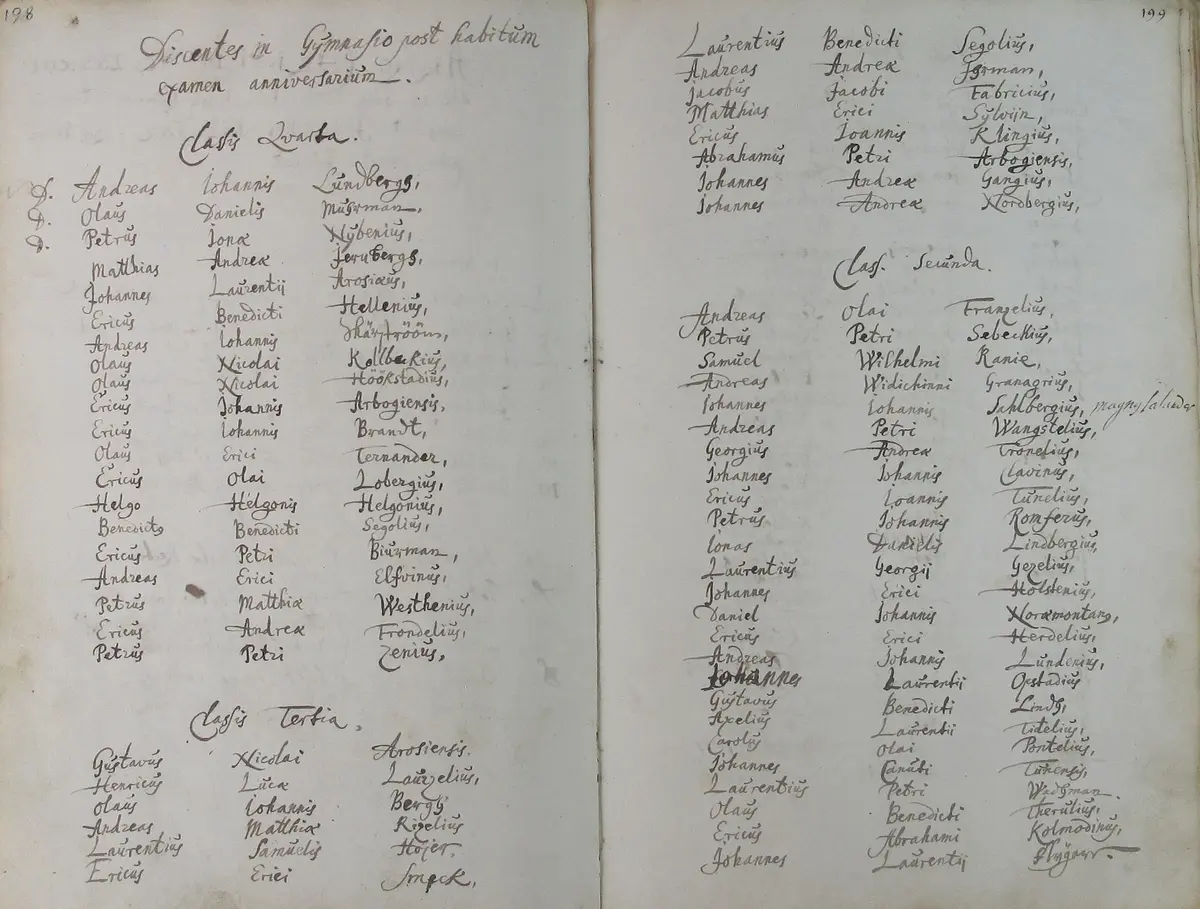 198
Discentes in Gymnasio post habitum
examen anniversarium.
Classis Qvarta.
D. Andreas Iohannis Lundbergs,
D. Olaus Danielis Muhrman,
D. Petrus Ionæ Nybenius,
Matthias Andreæ Jernbergs,
Johannes Laurentii
Ericus Benedicti Hellenius,
Andreas Iohannis
Olaus Nicolai Kolbeckius,
Olaus Nicolai Höökstadius,
Ericus Johannis Arbogiensis,
Ericus Iohannis Brandt,
Olaus Erici Ternander,
Ericus Olai Lobergius,
Helgo Helgonis Helgonius,
Benedictus Benedicti Segolius,
Ericus Petri Biurman,
Andreas Erici Elfvinus,
Petrus Matthiæ Westhenius,
Ericus Andreæ Frondelius,
Petrus Petri Zenius,
Classis Tertia,
Gustavus Nicolai Arosiensis.
Henricus Lucæ Laurzelius,
Olaus Iohannis Bergh
Andreas Matthiæ
Laurentius Samuelis Höjer,
Ericus Erici
199
Laurentius Benedicti Segolius,
Andreas Andreæ
Jacobus Jacobi Fabricius,
Matthias Erici Sylvijn,
Ericus Ioannis Klingius,
Abrahamus Petri Arbogiensis,
Johannes Andreæ Gangius,
Johannes Andreæ Nordbergius,
Class. Secunda.
Andreas Olai Franzelius,
Petrus Petri Sebeckius,
Samuel Wilhelmi Ranie,
Andreas Widichinni Granagrius,
Iohannes Iohannis Sahlbergius,
Andreas Petri Wangstelius,
Georgius Andreæ Tronelius,
Johannes Johannis Clavinus,
Ericus Ioannis Tunelius,
Petrus Johannis Romferus,
Ionas Danielis Lindbergius
Laurentius Georgij Gezelius,
Johannes Erici Holstenius,
Daniel Johannis Noræmontanus,
Ericus Erici Herdelius,
Andreas Johannis Lundenius,
Johannes Laurentij Opstadius
Gustavus Benedicti Lindh,
Axelius Laurentii Tidelius,
Carolus Olai Pontelius,
Johannes Canuti Tunensis,
Laurentius Petri Wadhman.
Olaus Benedicti Therulius,
Ericus Abrahami Kolmodinus,
Johannes Laurentij Flygare.